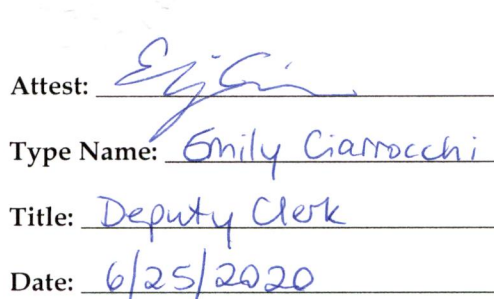 Attest:
Type Name: Emily Ciarrocchi
Title: Deputy Clerk
Date: 6/25/2020